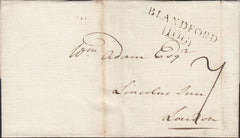 BLANDFORD
106
7
Wm Adam Esqr
Lincolns Inn
London